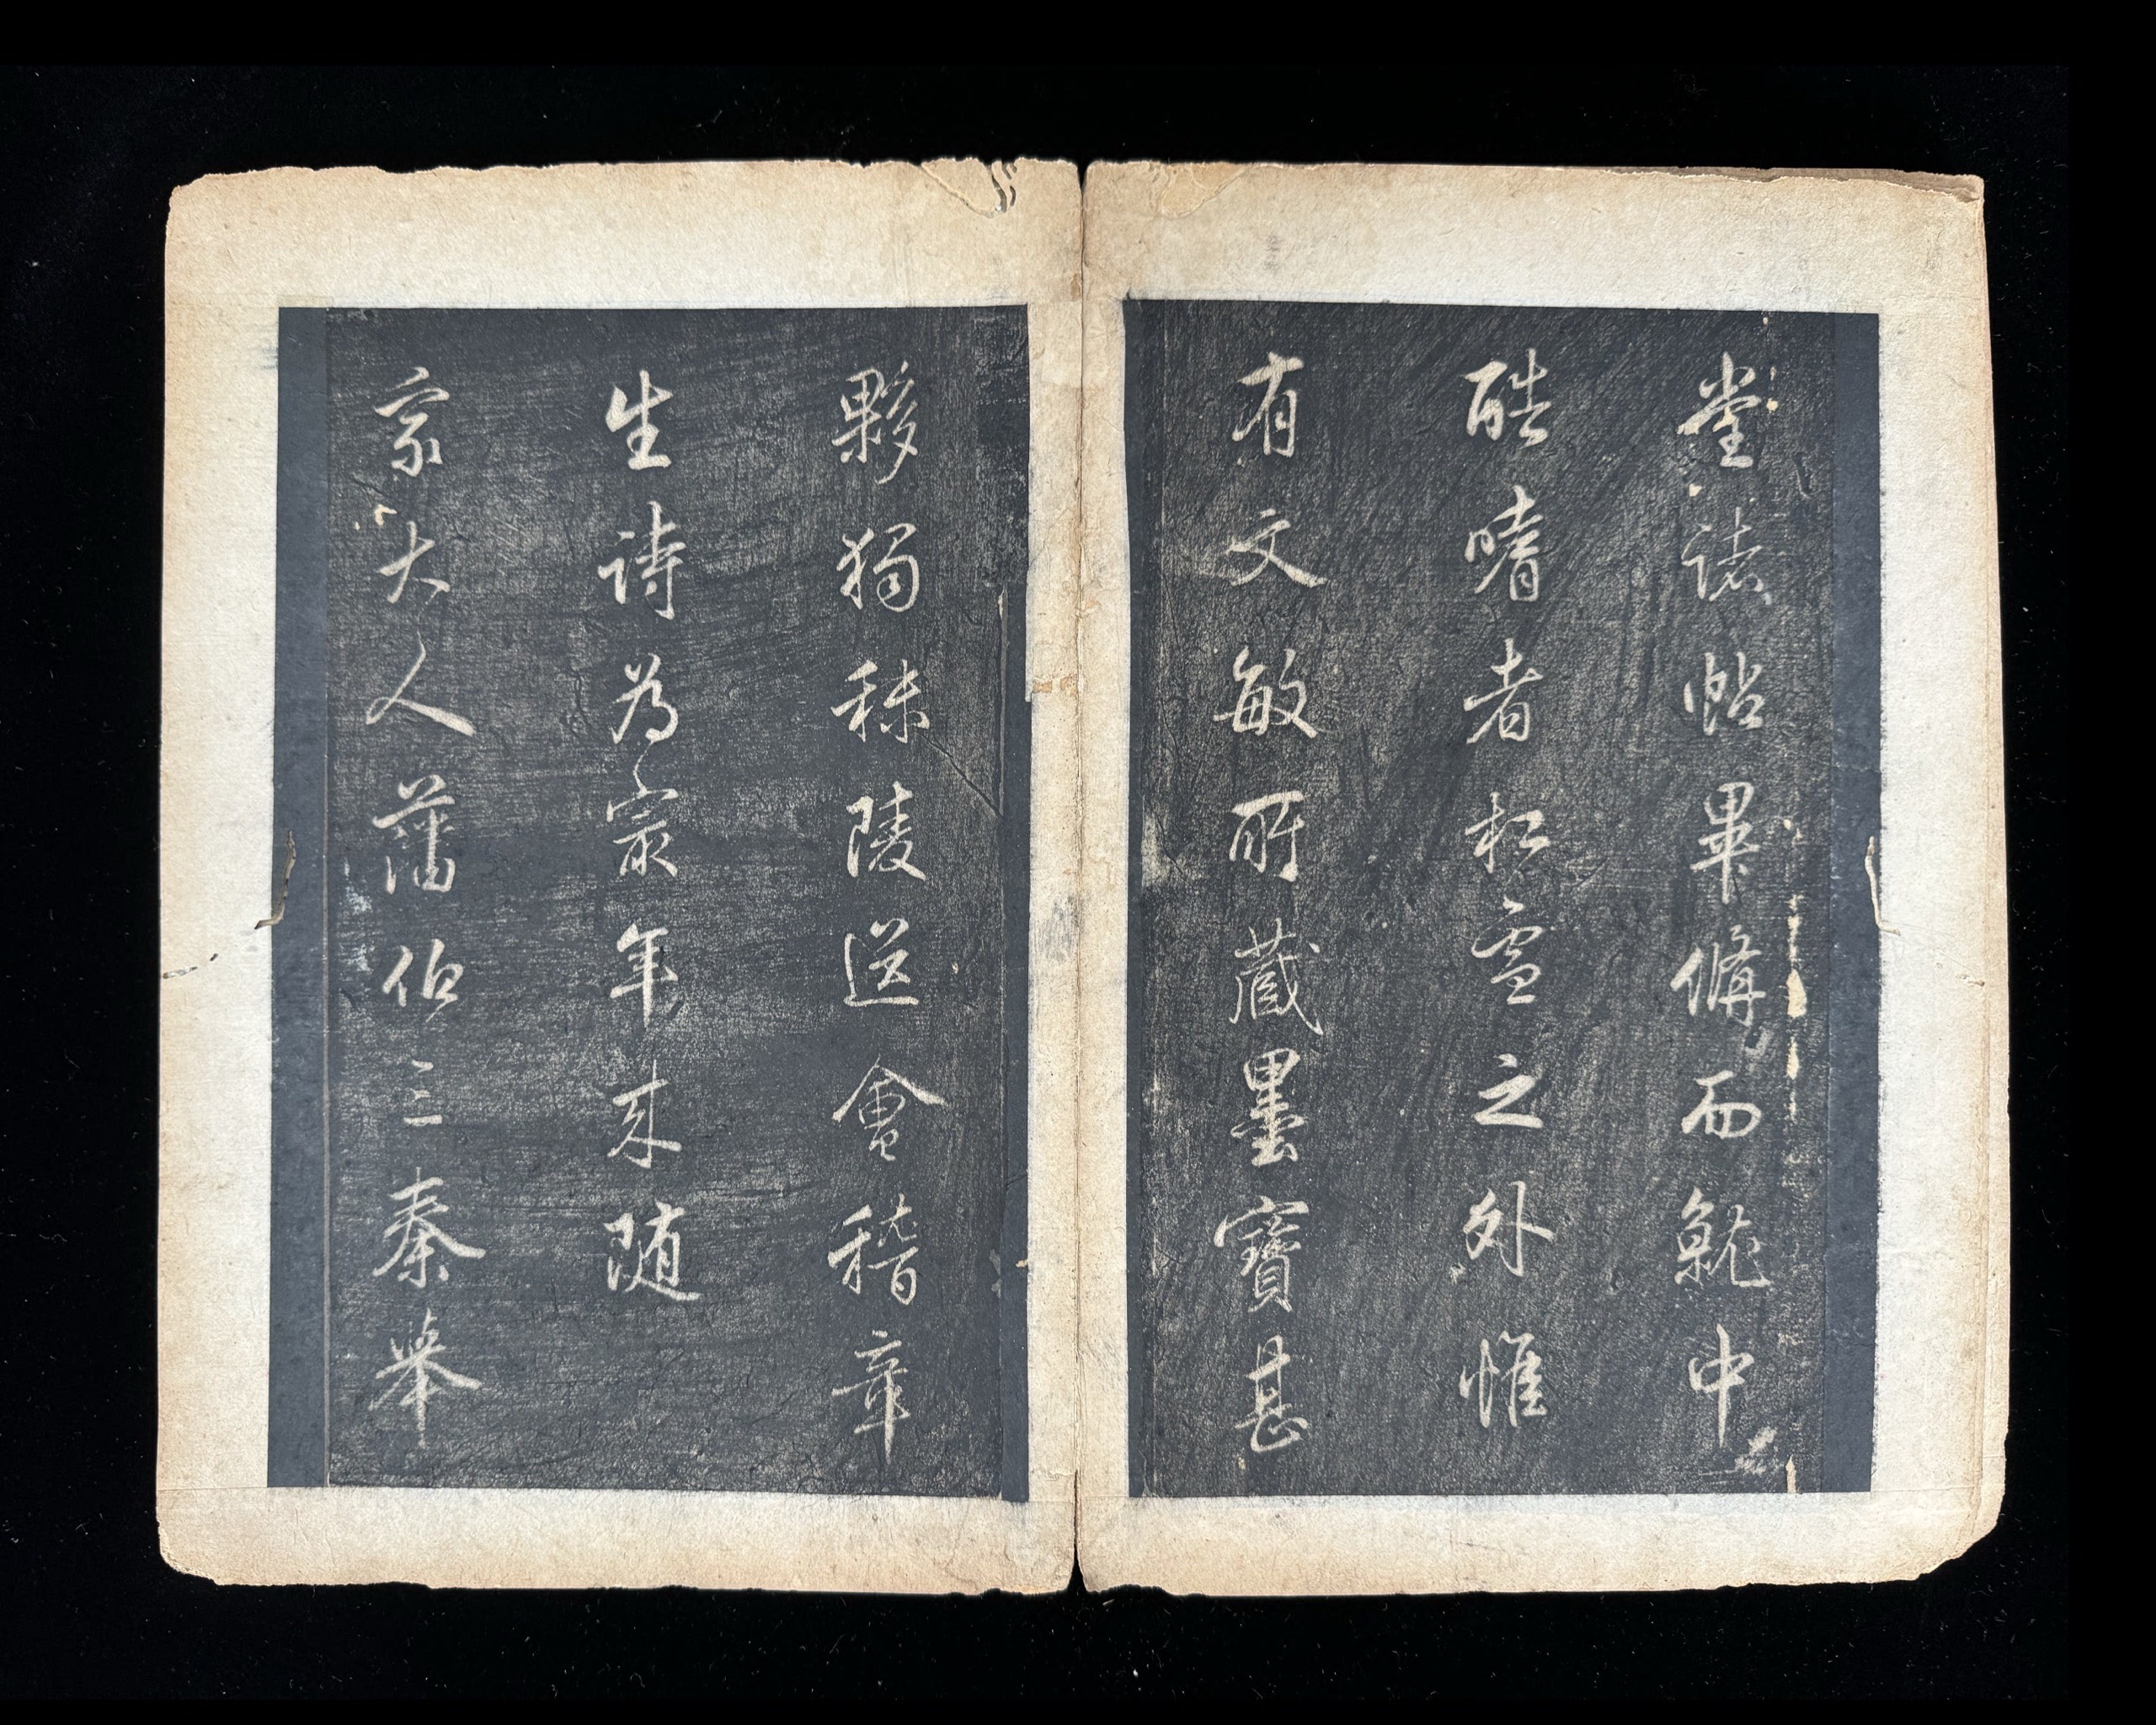 堂諸帖畢備而鮑中
酷嗜者松雪之外惟
有文敏所藏墨寶甚
夥獨秣陵送會稽章
生詩為冣年來随
家大人藩伯三秦攀